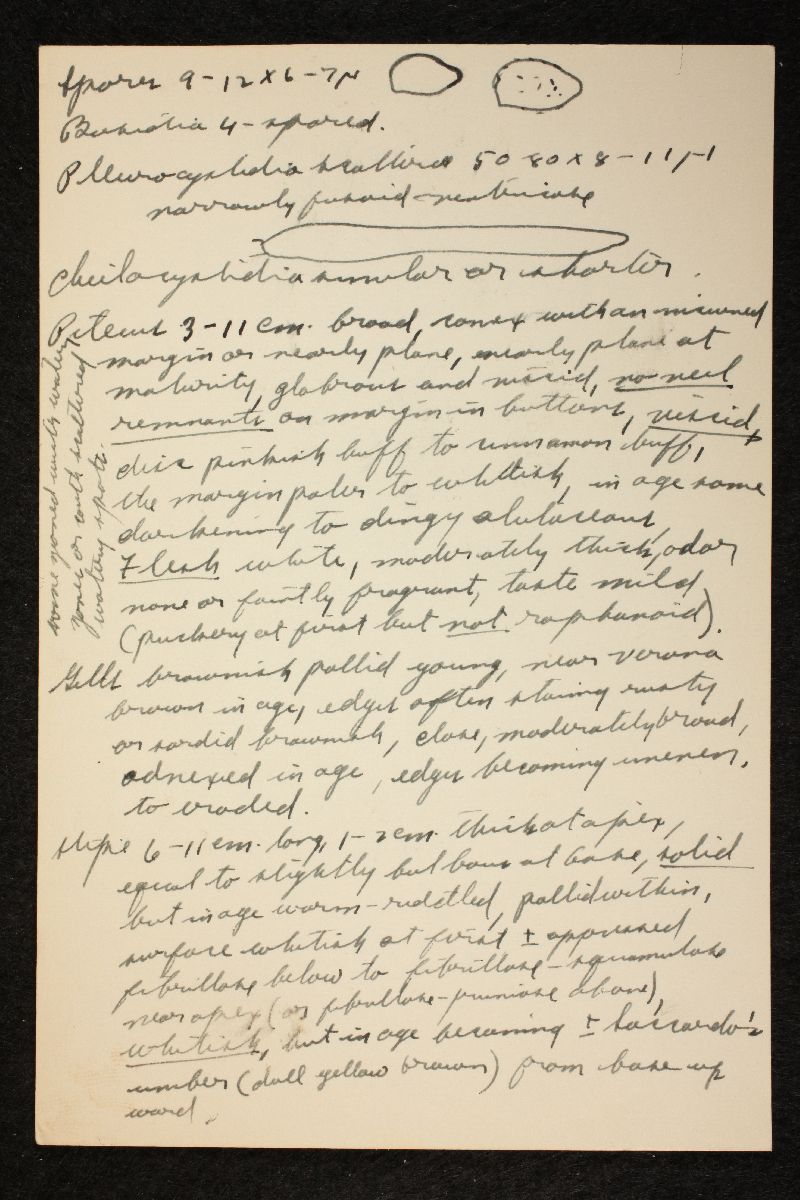 Spores 9-12 x 6-7μ
Basidia 4-spored.
Pleurocystidia scattered 50 80 x 8-11μ
narrowly fusoid-ventricose
Cheilocystidia similar or shorter.
Pileus 3-11 cm. broad, convex with an incurved
margin or nearly plane, nearly plane at
maturity, glabrous and viscid, no veil
remnants on margin in buttons, viscid,
disc pinkish buff to cinnamon buff,
the margin paler to whitish, in age some
darkening to dingy alutaceous,
Flesh white, moderately thick, odor
none or faintly fragrant, taste mild
(puckery at first but not raphanoid).
some zoned with watery
zones or with scattered
watery spots.
Gills brownish pallid young, near verona
brown in age, edges often staining rusty
or sordid brownish, close, moderately broad,
adnexed in age, edges becoming uneven,
to eroded.
Stipe 6-11 cm. long, 1-2 cm. thick at apex,
equal to slightly bulbous at base, solid
but in age worm-riddled, pallid within,
surface whitish at first ± appressed
fibrillose below to fibrillose-squamulose
near apex (or fibrillose-pruinose above),
whitish, but in age becoming ± Saccardo's
umber (dull yellow brown) from base up
ward.